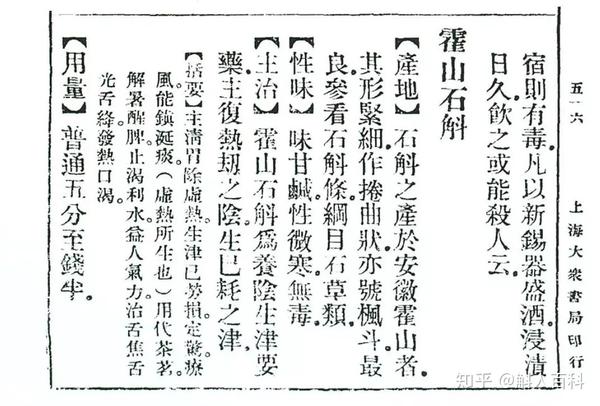 五一六
上海大衆書局印行
宿則有毒。凡以新錫器盛酒浸漬
日久飲之或能殺人云。
霍山石斛
【產地】石斛之產於安徽霍山者。
其形緊細作捲曲狀亦號楓斗最
良。參看石斛條。綱目石草類。
【性味】味甘鹹。性微寒無毒。
【主治】霍山石斛爲養陰生津要
藥。主復熱刼之陰。生已耗之津。
【括要】主清胃除虛熱。生津已勞損。定驚療
風。能鎮涎痰（虛熱所生也）用代茶茗。
解暑醒脾。止渴利水。益人氣力。治舌焦舌
光舌絳。發熱口渴。
【用量】普通五分至錢半。
知乎 @斛人百科